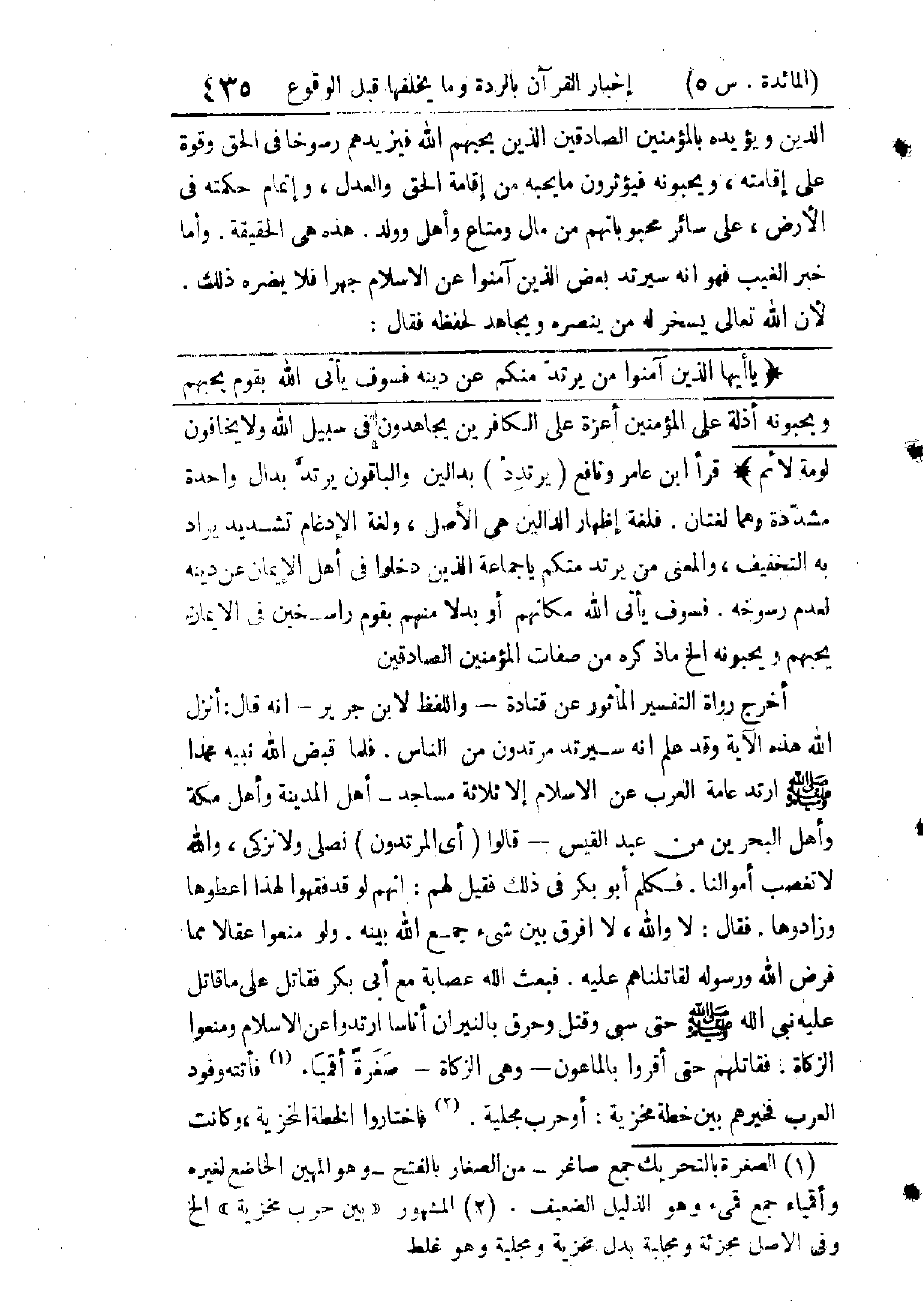 (المائدة . س ٥) إخبار القرآن بالردة وما يخلفها قبل الوقوع ٤٣٥
الدين ويؤيده بالمؤمنين الصادقين الذين يحبهم الله فيزيدهم رسوخا فى الحق وقوة
على إقامته ، ويحبونه فيؤثرون مايحبه من إقامة الحق والعدل ، وإتمام حكمته فى
الأرض ، على سائر محبوباتهم من مال ومتاع وأهل وولد . هذه هى الحقيقة . وأما
خبر الغيب فهو انه سيرتد بعض الذين آمنوا عن الاسلام جهرا فلا يضره ذلك .
لأن الله تعالى يسخر له من ينصره ويجاهد لحفظه فقال :
﴿ ياأيها الذين آمنوا من يرتدّ منكم عن دينه فسوف يأتى الله بقوم يحبهم
ويحبونه أذلة على المؤمنين أعزة على الكافرين يجاهدون فى سبيل الله ولايخافون
لومة لائم ﴾ قرأ ابن عامر ونافع ( يرتدِدْ ) بدالين والباقون يرتدَّ بدال واحدة
مشدّدة وهما لغتان . فلغة إظهار الدالين هى الأصل ، ولغة الإدغام تشديد يراد
به التخفيف ، والمعنى من يرتد منكم ياجماعة الذين دخلوا فى أهل الإيمان عن دينه
لعدم رسوخه . فسوف يأتى الله مكانهم أو بدلا منهم بقوم راسخين فى الايمان
يحبهم ويحبونه الخ ماذكره من صفات المؤمنين الصادقين
أخرج رواة التفسير المأثور عن قتادة — واللفظ لابن جرير — انه قال : أنزل
الله هذه الآية وقد علم انه سيرتد مرتدون من الناس . فلما قبض الله نبيه محمدا
ﷺ ارتد عامة العرب عن الاسلام إلا ثلاثة مساجد — أهل المدينة وأهل مكة
وأهل البحرين من عبد القيس — قالوا ( أى المرتدون ) نصلى ولانزكى ، والله
لاتغصب أموالنا . فكلم أبو بكر فى ذلك فقيل لهم : انهم لو قدفقهوا لهذا اعطوها
وزادوها . فقال : لا والله ، لا افرق بين شىء جمع الله بينه . ولو منعوا عقالا مما
فرض الله ورسوله لقاتلناهم عليه . فبعث الله عصابة مع أبى بكر فقاتل على ماقاتل
عليه نبى الله ﷺ حتى سبى وقتل وحرق بالنيران أناسا ارتدوا عن الاسلام ومنعوا
الزكاة : فقاتلهم حتى أقروا بالماعون — وهى الزكاة — صَغَرَةً أقمِيَاء (١) فأتته وفود
العرب فخيرهم بين خطة مخزية : أوحرب مجلية . (٢) فاختاروا الخطة المخزية ، وكانت
(١) الصغرة بالتحريك جمع صاغر — من الصغار بالفتح — وهو المهين الخاضع لغيره
وأقمياء جمع قمىء وهو الذليل الضعيف . (٢) المشهور « بين حرب مخزية » الخ
وفى الاصل مجزئة ومجلبة بدل مخزية ومجلية وهو غلط